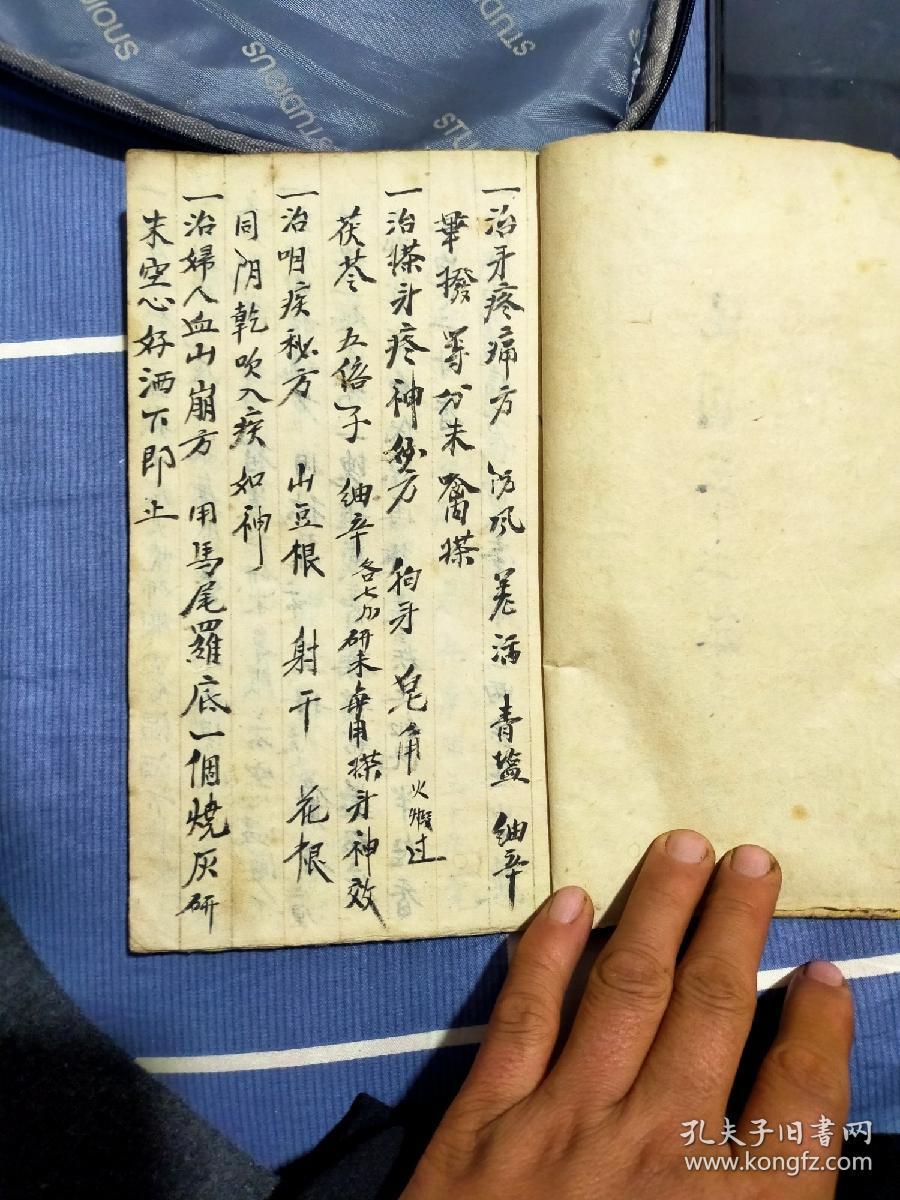 一治牙疼痛方 防风 羌活 青盐 细辛
荜拨 等分末 噙搽
一治搽牙疼神妙方 狗牙 皂角火煅过
茯苓 五倍子 细辛各七分研末每用搽牙神效
一治咽疾秘方 山豆根 射干 花根
同阴乾吹入疾如神
一治婦人血山崩方 用馬尾羅底一個燒灰研
末空心好酒下即止
STUDIOUS
STUDIOUS
STUDIOUS
孔夫子旧书网
www.kongfz.com